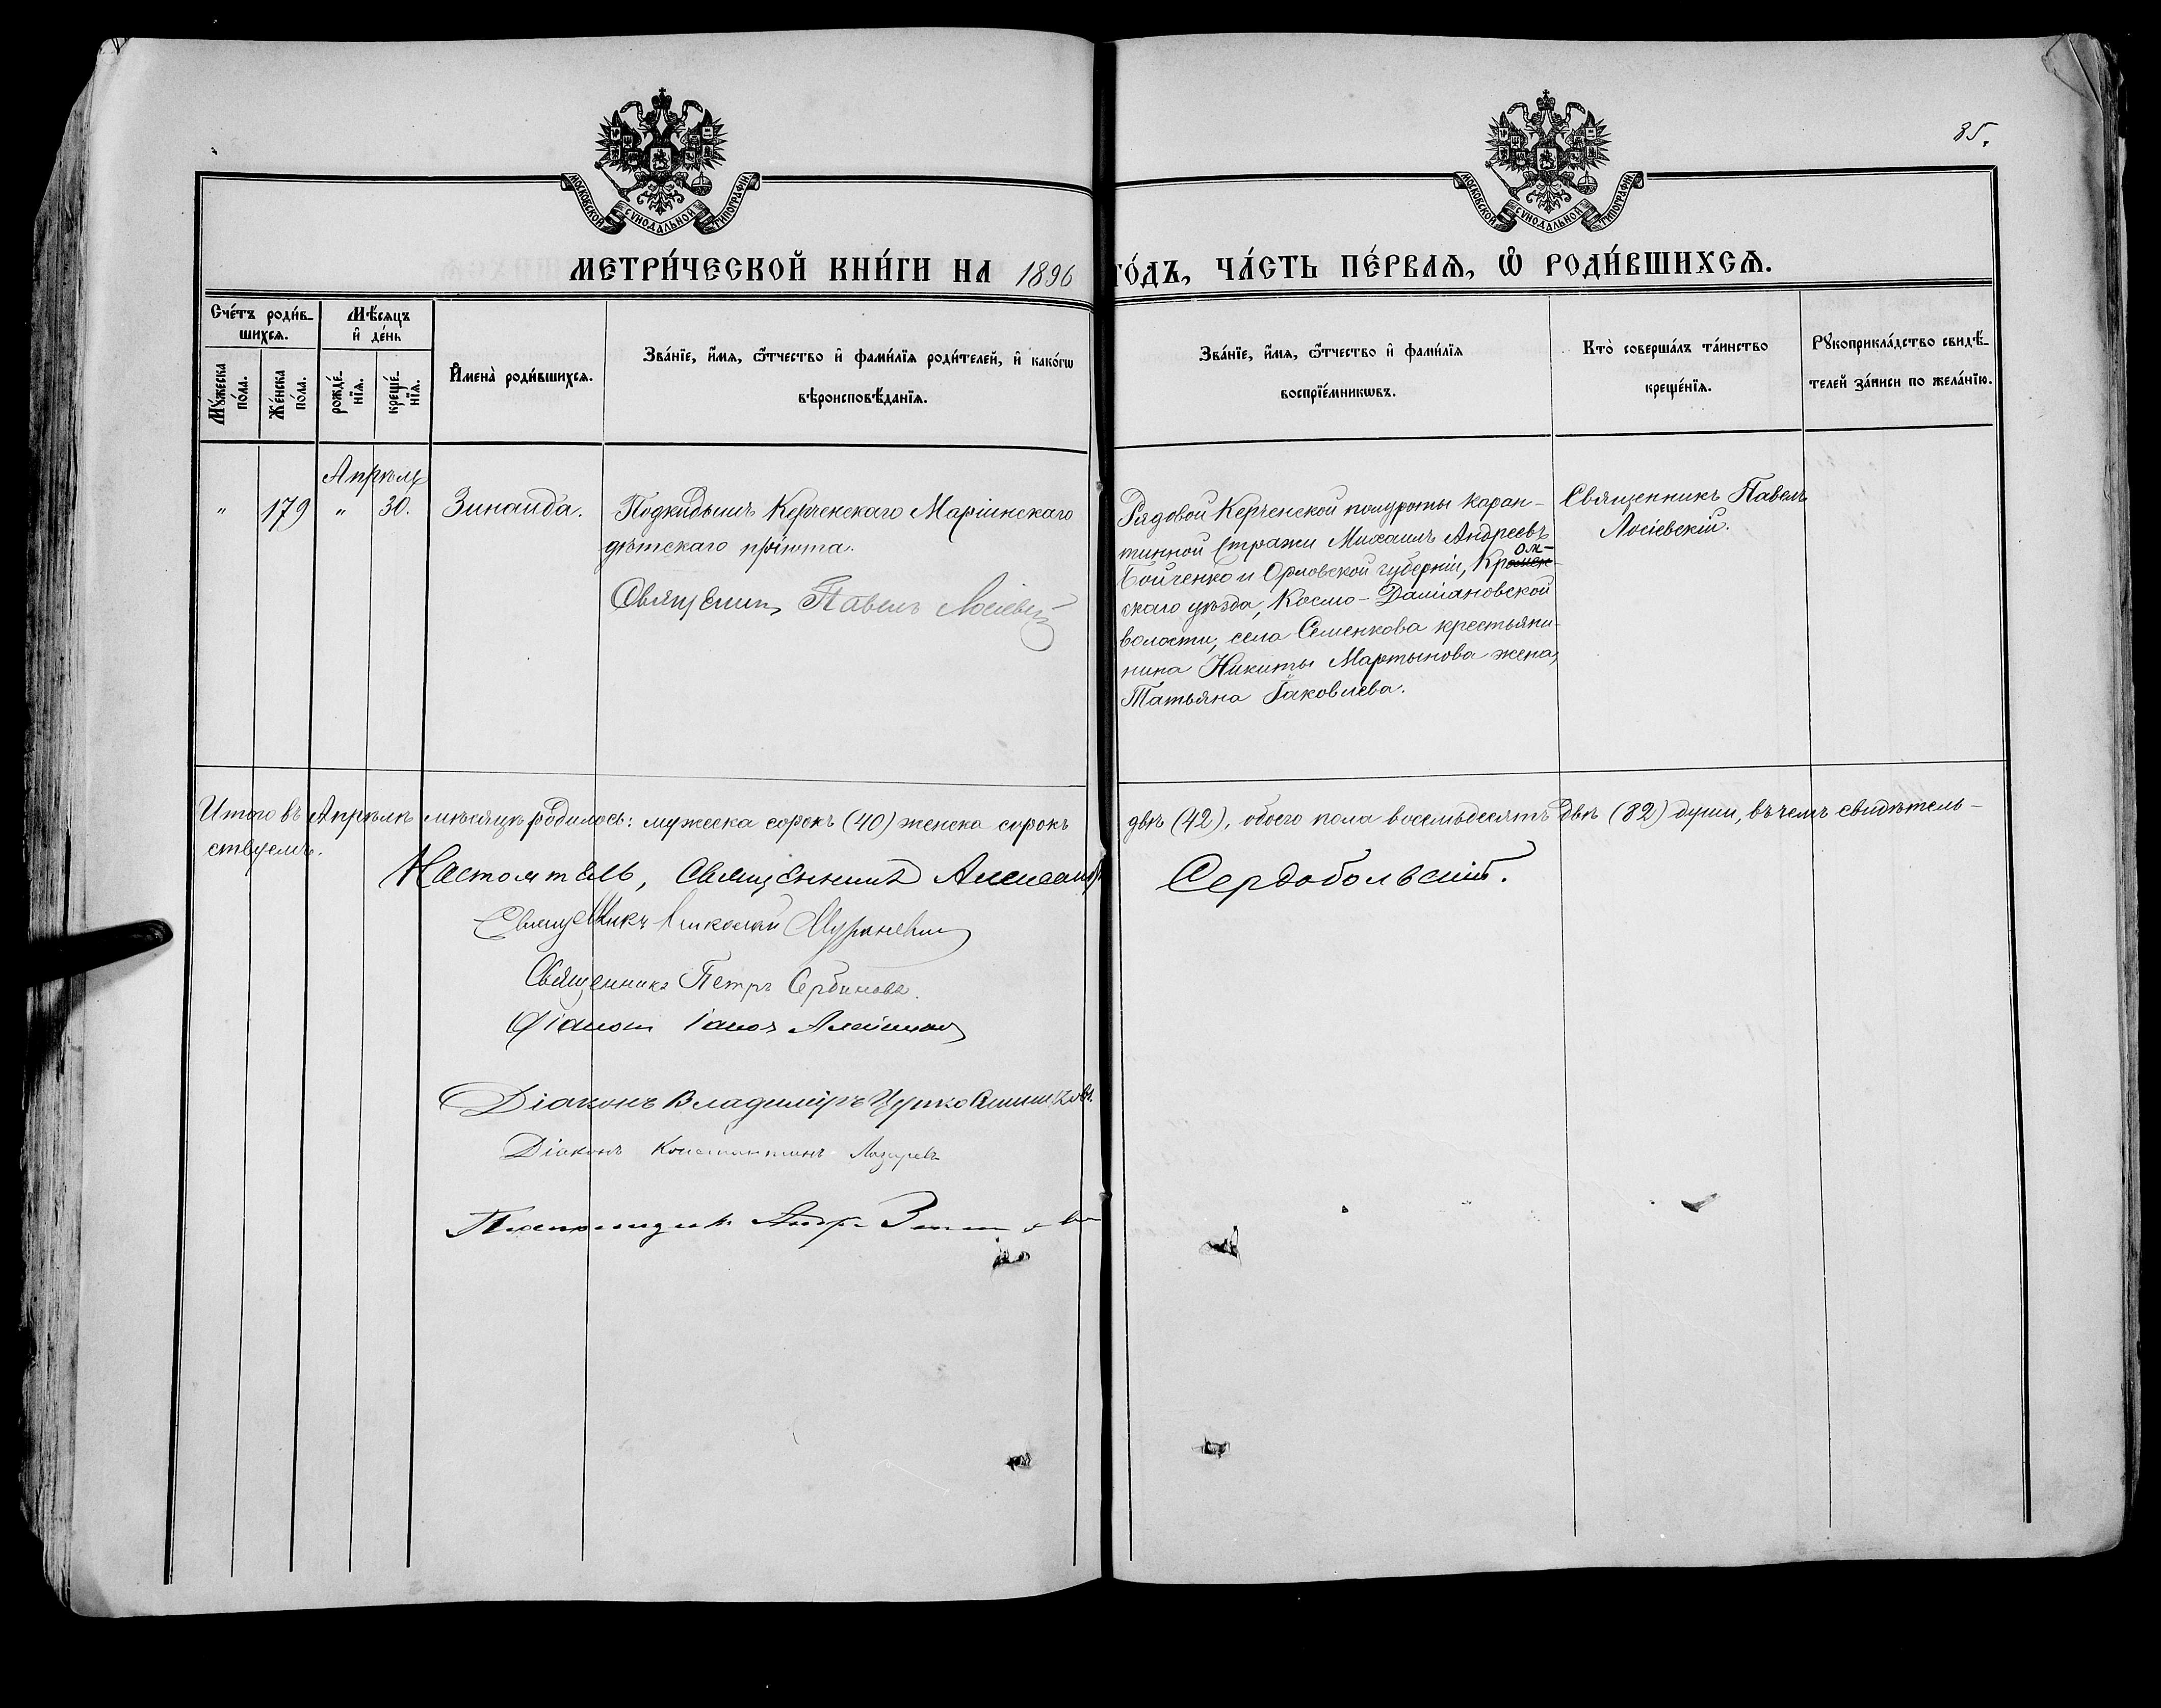 85.
МОСКОВСКОЙ СѴНОДАЛЬНОЙ ТИПОГРАФІИ
МОСКОВСКОЙ СѴНОДАЛЬНОЙ ТИПОГРАФІИ
МЕТРИ́ЧЕСКОЙ КНИ́ГИ НА 1896 ГО́ДЪ, ЧА́СТЬ ПЕ́РВАѦ, Ѡ҆ РОДИ́ВШИХСѦ.
Сче́тъ роди́в-
шихсѧ.
Мꙋ́жеска по́ла.
Же́нска по́ла.
Мѣ́сѧцъ
и҆ де́нь
рожде́-
нїѧ.
креще́-
нїѧ.
И҆мена̀ роди́вшихсѧ.
Зва́нїе, и҆́мѧ, ѻ҆́тчество и҆ фами́лїѧ роди́телей, и҆ како́гѡ
вѣроисповѣ́данїѧ.
Зва́нїе, и҆́мѧ, ѻ҆́тчество и҆ фами́лїѧ
воспрїе́мникѡвъ.
Кто̀ соверша́лъ та́инство
креще́нїѧ.
Рꙋкоприкла́дство свидѣ́-
телей за́писи по жела́нїю.
Апрѣль
" 179 " 30. Зинаида.
Подкидышъ Керченскаго Маріинскаго
дѣтскаго пріюта.
Священникъ Павелъ Лосіевскій
Рядовой Керченской полуроты каран-
тинной стражи Михаилъ Андреевъ
Бойченко и Орловской губерніи, Кром-
скаго уѣзда, Космо-Даміановской
волости, села Семенкова крестьяни-
нина Никиты Мартынова жена,
Татьяна Іаковлева.
Священникъ Павелъ
Лосіевскій.
Итого въ Апрѣлѣ мѣсяцѣ родилось: мужеска сорокъ (40) женска сорокъ двѣ (42), обоего пола восемьдесятъ двѣ (82) души, въ чемъ свидѣтель-
ствуемъ.
Настоятель, Священникъ Александръ Сердобольскій.
Священникъ Николай
Священникъ Петръ Сербиновъ.
Діаконъ
Діаконъ Владиміръ
Діаконъ Константинъ Лазаревъ
Псаломщикъ